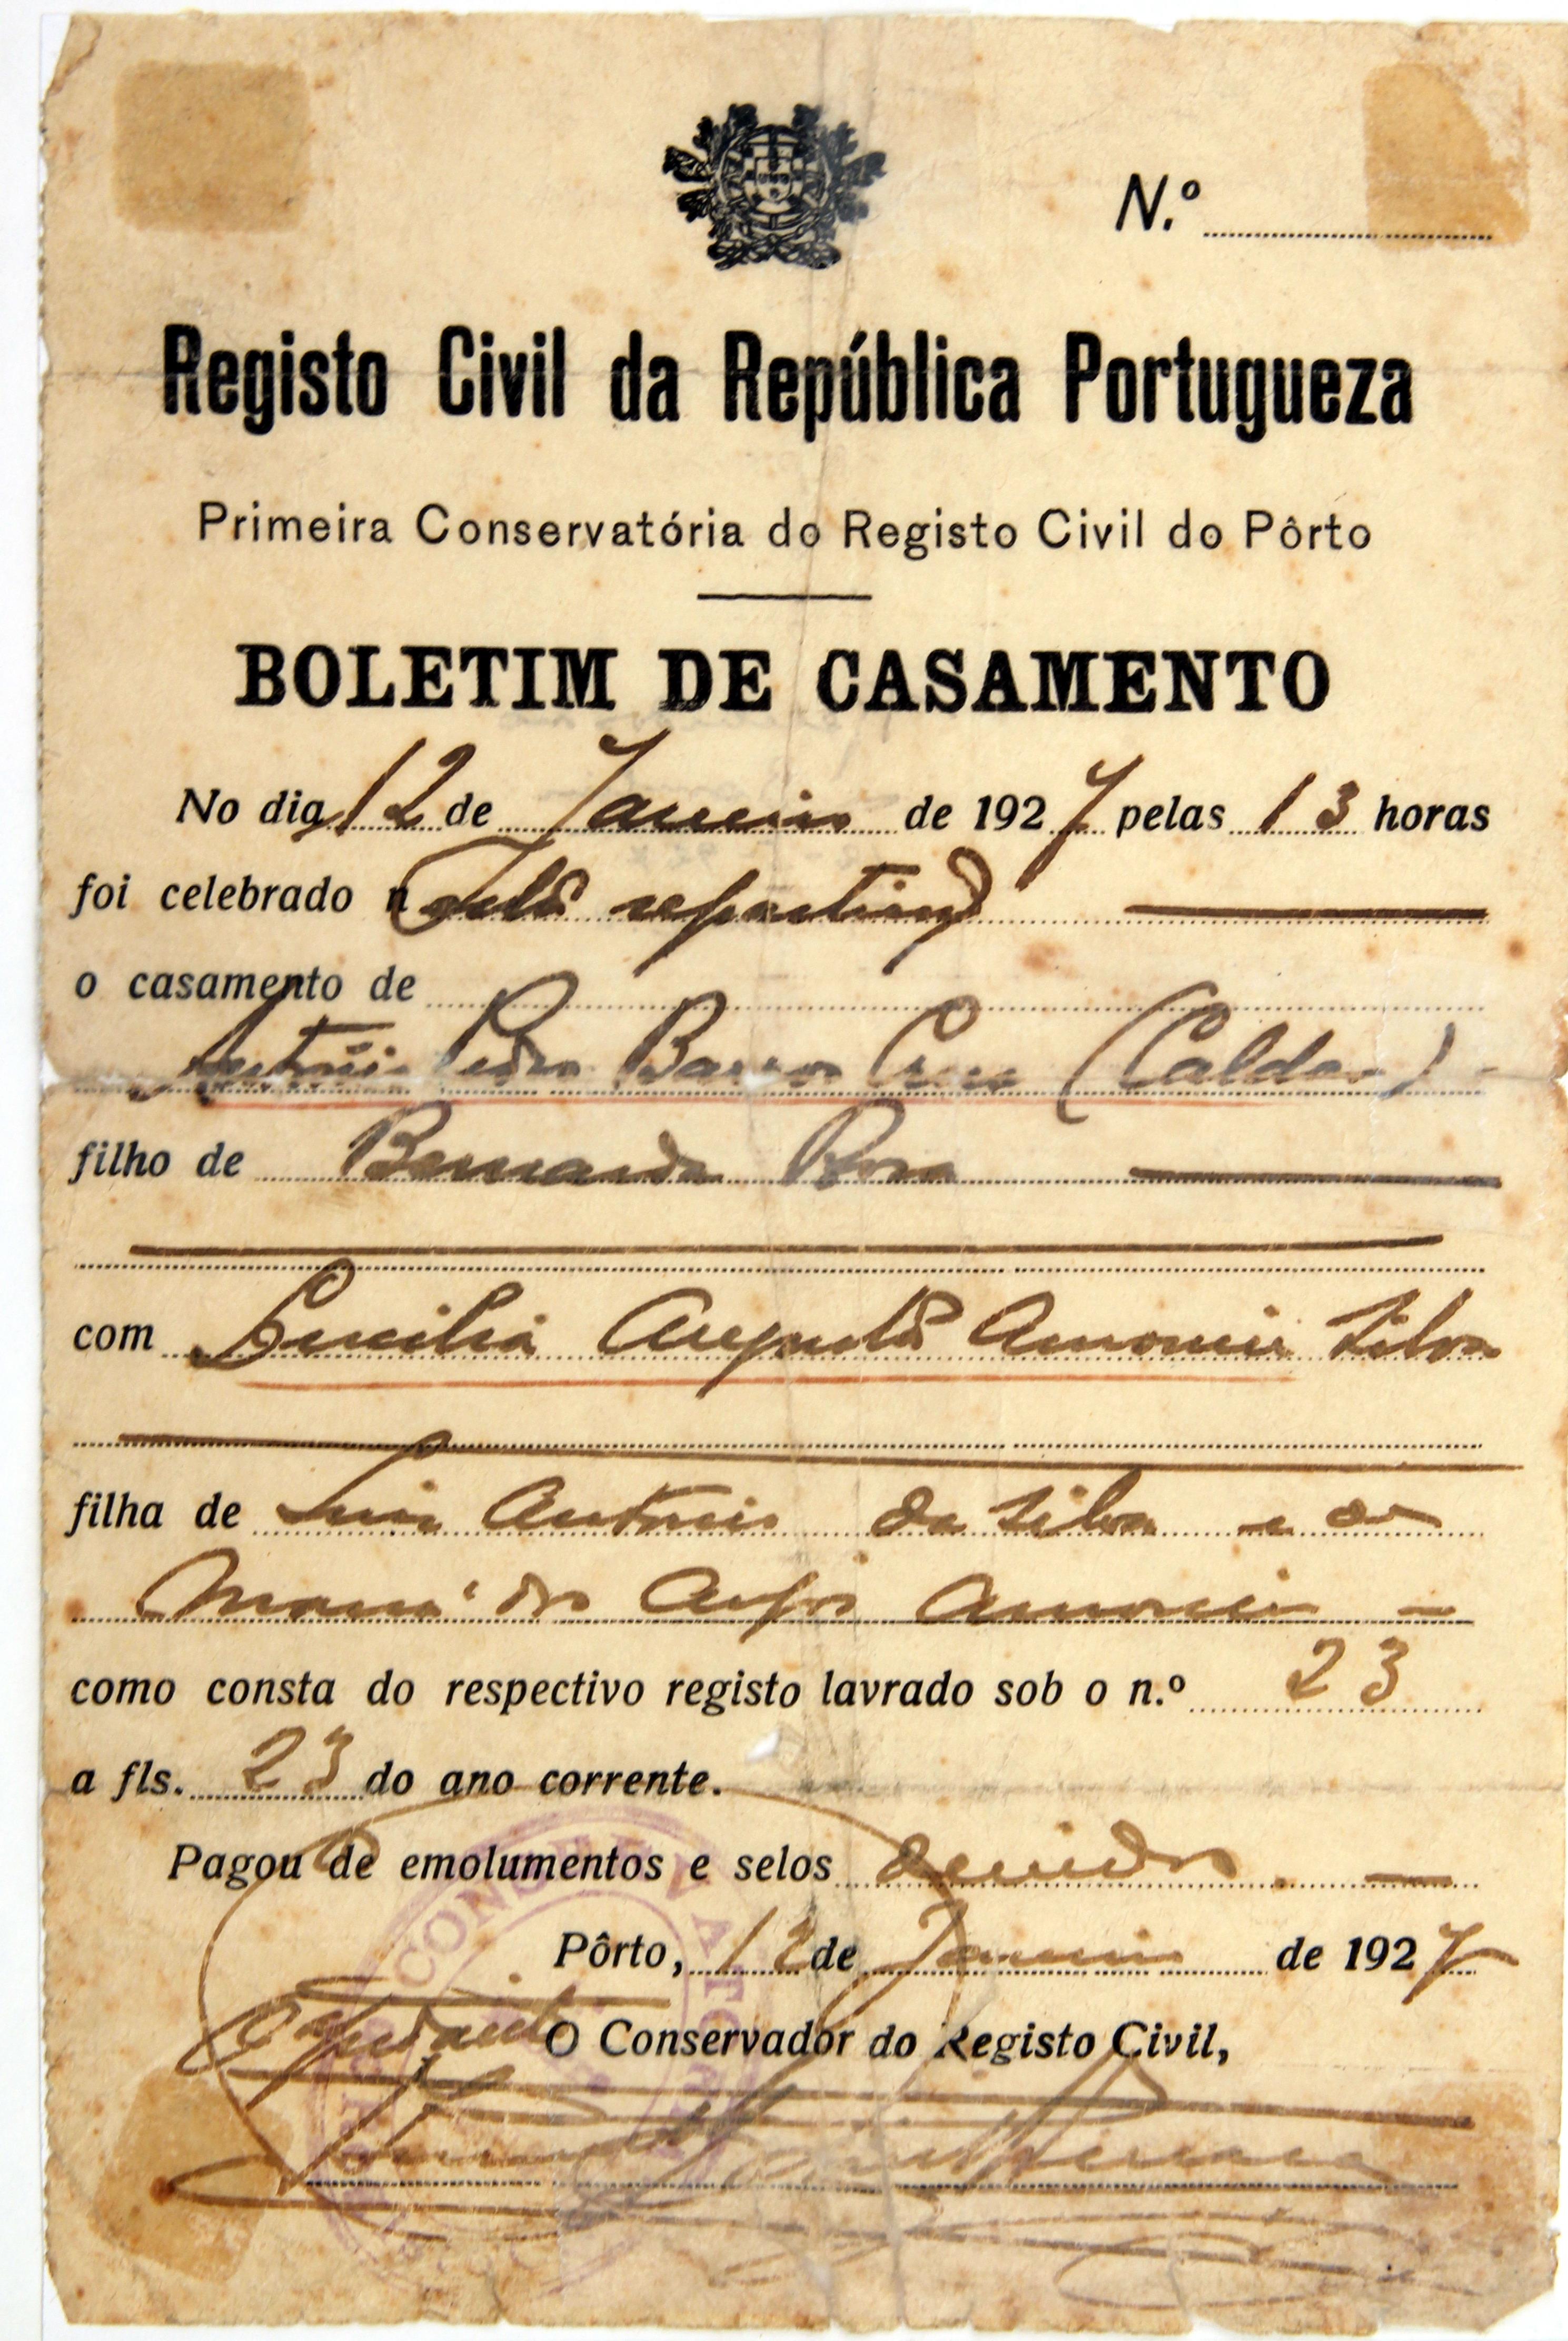 N.º
Registo Civil da República Portugueza
Primeira Conservatória do Registo Civil do Pôrto
BOLETIM DE CASAMENTO
No dia 12 de Janeiro de 1927 pelas 13 horas
foi celebrado n esta repartição
o casamento de
António Pedro Barros Cruz (Caldas)
filho de Bernarda Rosa
com Lucilia Augusta Amorim Silva
filha de Luis Antonio da Silva e de
Maria dos Anjos Amorim
como consta do respectivo registo lavrado sob o n.º 23
a fls. 23 do ano corrente.
Pagou de emolumentos e selos devidos
Pôrto, 12 de Janeiro de 1927
Ajudante O Conservador do Registo Civil,